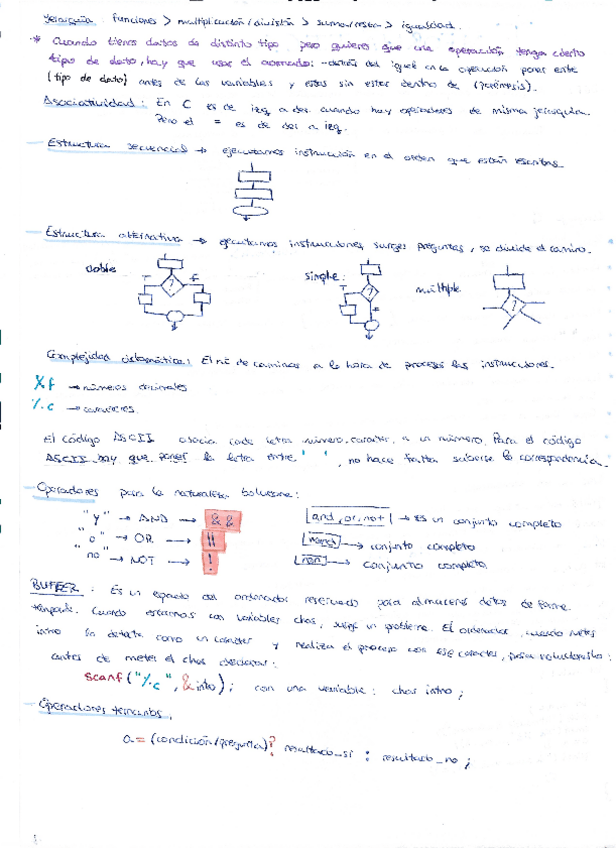 Jerarquía: funciones > multiplicación/división > suma/resta > igualdad.
* Cuando tienes datos de distinto tipo pero quieres que una operación tenga cierto
tipo de dato, hay que usar el : detrás del igual en la operación pones este
(tipo de dato) antes de las variables y estas sin estar dentro de (paréntesis).
Asociatividad: En C es de izq a der cuando hay operadores de misma jerarquía.
Pero el = es de der a izq.
Estructura secuencial → ejecutamos instrucción en el orden que están escritas.
Estructura alternativa → ejecutamos instrucciones, surges preguntas, se divide el camino.
doble
T ? F
simple:
T ?
múltiple
?
Complejidad ciclomática: El nº de caminos a la hora de procesar las instrucciones.
%f → números decimales
%c → caracteres
El código ASCII asocia cada letra, número, carácter, a un número. Para el código
ASCII hay que poner la letra entre ' ', no hace falta saberse la correspondencia.
Operadores para la naturaleza booleana:
"y" → AND → &&
"o" → OR → ||
"no" → NOT → !
and, or, not → Es un conjunto completo
→ conjunto completo
→ conjunto completo
BUFFER: Es un espacio del ordenador reservado para almacenar datos de forma
temporal. Cuando estamos con variables char, surge un problema. El ordenador, cuando metes
intro lo detecta como un caracter y realiza el proceso con ese caracter, para solucionarlo:
antes de meter el char deseado:
scanf("%c", &intro); con una variable: char intro;
Operadores ternarios.
a = (condición/pregunta)? resultado_si : resultado_no;